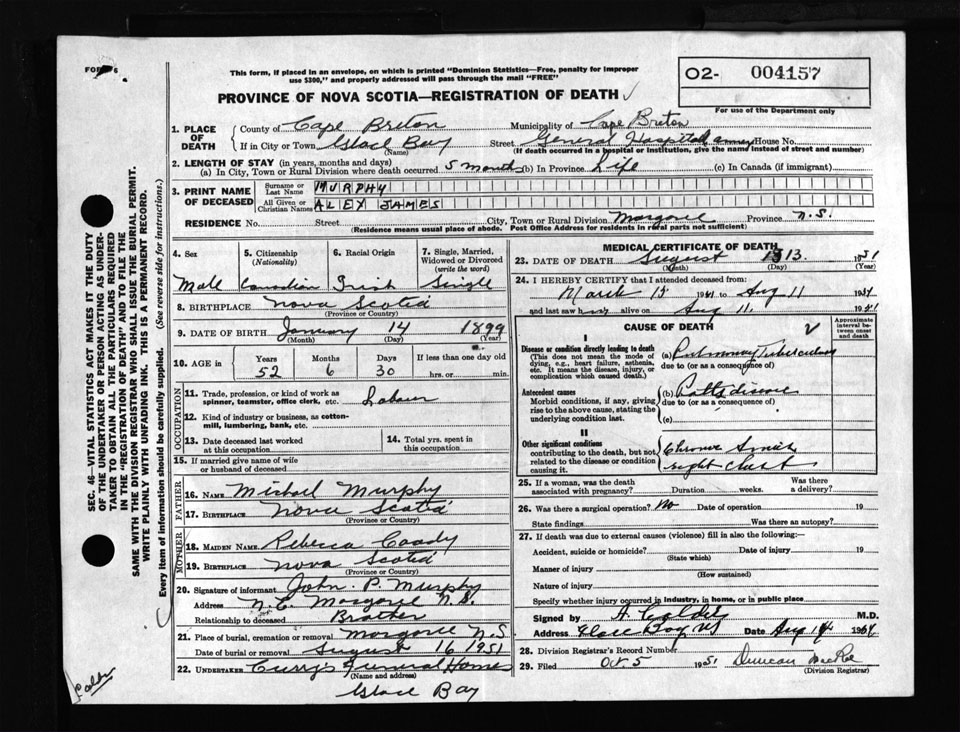 02- 004157
For use of the Department only
This form, if placed in an envelope, on which is printed "Dominion Statistics—Free, penalty for improper
use $300," and properly addressed will pass through the mail "FREE"
PROVINCE OF NOVA SCOTIA—REGISTRATION OF DEATH
1. PLACE OF DEATH County of Cape Breton Municipality of Cape Breton
If in City or Town Glace Bay Street General Hospital House No.
(Name) (If death occurred in a hospital or institution, give the name instead of street and number)
2. LENGTH OF STAY (in years, months and days)
(a) In City, Town or Rural Division where death occurred 5 months (b) In Province Life (c) In Canada (if immigrant)
3. PRINT NAME OF DECEASED
Surname or Last Name MURPHY
All Given or Christian Names ALEX JAMES
RESIDENCE No. Street City, Town or Rural Division Margaree Province N.S.
(Residence means usual place of abode. Post Office Address for residents in rural parts not sufficient)
4. Sex Male
5. Citizenship (Nationality) Canadian
6. Racial Origin Irish
7. Single, Married, Widowed or Divorced (write the word) Single
8. BIRTHPLACE Nova Scotia
(Province or Country)
9. DATE OF BIRTH January 14 1899
(Month) (Day) (Year)
10. AGE in Years 52 Months 6 Days 30 If less than one day old hrs. or min.
OCCUPATION
11. Trade, profession, or kind of work as spinner, teamster, office clerk, etc. Labour
12. Kind of industry or business, as cotton-mill, lumbering, bank, etc.
13. Date deceased last worked at this occupation
14. Total yrs. spent in this occupation
15. If married give name of wife or husband of deceased
FATHER
16. NAME Michael Murphy
17. BIRTHPLACE Nova Scotia
(Province or Country)
MOTHER
18. MAIDEN NAME Rebecca Coady
19. BIRTHPLACE Nova Scotia
(Province or Country)
20. Signature of informant John P. Murphy
Address N.E. Margaree N.S.
Relationship to deceased Brother
21. Place of burial, cremation or removal Margaree N.S.
Date of burial or removal August 16 1951
22. UNDERTAKER Curry's Funeral Home
(Name and address)
Glace Bay
MEDICAL CERTIFICATE OF DEATH
23. DATE OF DEATH August 13 1951
(Month) (Day) (Year)
24. I HEREBY CERTIFY that I attended deceased from:
March 13 1951 to Aug 11 1951
and last saw him alive on Aug 11. 1951
CAUSE OF DEATH
Approximate interval between onset and death
I
Disease or condition directly leading to death
(This does not mean the mode of dying, e.g., heart failure, asthenia, etc. It means the disease, injury, or complication which caused death.)
(a) Pulmonary Tuberculosis
due to (or as a consequence of)
Antecedent causes
Morbid conditions, if any, giving rise to the above cause, stating the underlying condition last.
(b) Potts disease
due to (or as a consequence of)
(c)
II
Other significant conditions contributing to the death, but not related to the disease or condition causing it.
Chronic
right chest
25. If a woman, was the death associated with pregnancy? Duration weeks. Was there a delivery?
26. Was there a surgical operation? No Date of operation 19
State findings Was there an autopsy?
27. If death was due to external causes (violence) fill in also the following:—
Accident, suicide or homicide? Date of injury 19
(State which)
Manner of injury
(How sustained)
Nature of injury
Specify whether injury occurred in industry, in home, or in public place
Signed by A Calder M.D.
Address Glace Bay NS Date Aug 14 1951
28. Division Registrar's Record Number
29. Filed Oct 5 1951 Duncan MacRae
(Division Registrar)
SEC. 46—VITAL STATISTICS ACT MAKES IT THE DUTY
OF THE UNDERTAKER OR PERSON ACTING AS UNDERTAKER
TO OBTAIN ALL THE PARTICULARS REQUIRED
IN THE "REGISTRATION OF DEATH" AND TO FILE THE
SAME WITH THE DIVISION REGISTRAR WHO SHALL ISSUE THE BURIAL PERMIT.
WRITE PLAINLY WITH UNFADING INK. THIS IS A PERMANENT RECORD.
Every item of information should be carefully supplied. (See reverse side for instructions.)